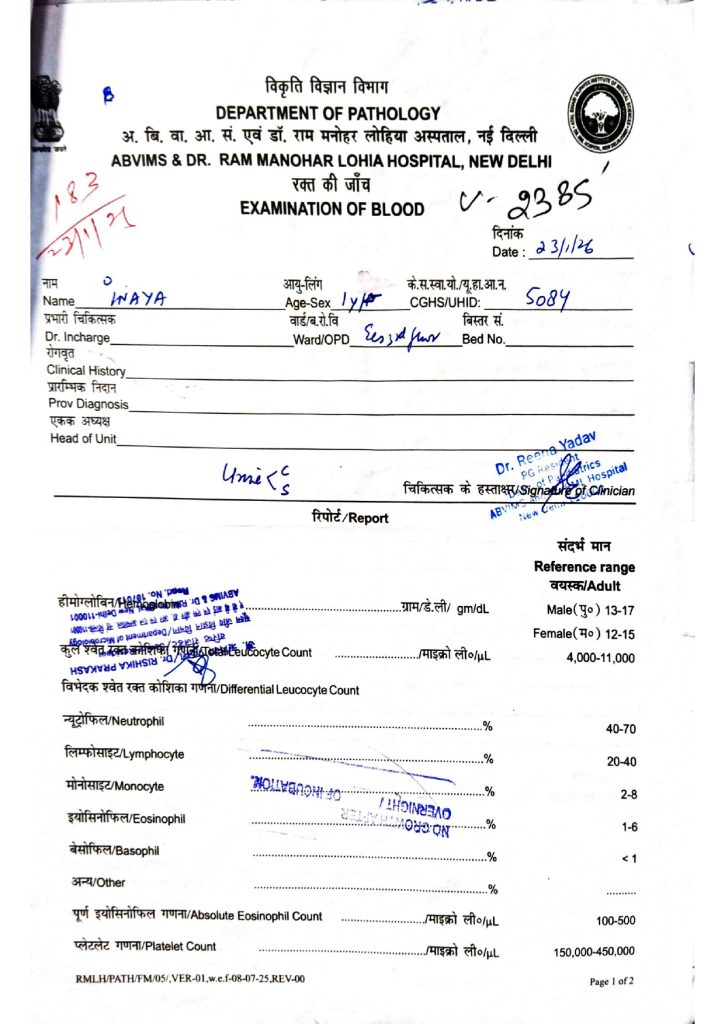 विकृति विज्ञान विभाग
DEPARTMENT OF PATHOLOGY
अ. बि. वा. आ. सं. एवं डॉ. राम मनोहर लोहिया अस्पताल, नई दिल्ली
ABVIMS & DR. RAM MANOHAR LOHIA HOSPITAL, NEW DELHI
रक्त की जाँच
EXAMINATION OF BLOOD
183
23/1/26
U- 2385
दिनांक
Date : 23/1/26
नाम
Name INAYA
आयु-लिंग
Age-Sex 1y/
के.स.स्वा.यो./यू.हा.आ.न.
CGHS/UHID: 5084
प्रभारी चिकित्सक
Dr. Incharge
वार्ड/ब.रो.वि
Ward/OPD
बिस्तर सं.
Bed No.
रोगवृत
Clinical History
प्रारम्भिक निदान
Prov Diagnosis
एकक अध्यक्ष
Head of Unit
Urine C
S
Dr. Reena Yadav
PG Resident
of Paediatrics
ABVIMS Hospital
New Delhi
चिकित्सक के हस्ताक्षर/Signature of Clinician
रिपोर्ट/Report
संदर्भ मान
Reference range
वयस्क/Adult
हीमोग्लोबिन/Hemoglobin ग्राम/डे.ली/ gm/dL Male(पु०) 13-17
Female(म०) 12-15
कुल श्वेत रक्त कोशिका गणना/Total Leucocyte Count /माइक्रो ली०/µL 4,000-11,000
Dr. RISHIKA PRAKASH
Department of Microbiology
ABVIMS & Dr RML
New Delhi-110001
विभेदक श्वेत रक्त कोशिका गणना/Differential Leucocyte Count
न्यूट्रोफिल/Neutrophil % 40-70
लिम्फोसाइट/Lymphocyte % 20-40
मोनोसाइट/Monocyte % 2-8
NO GROWTH AFTER
OVERNIGHT /
OF INCUBATION.
इयोसिनोफिल/Eosinophil % 1-6
बेसोफिल/Basophil % < 1
अन्य/Other %
पूर्ण इयोसिनोफिल गणना/Absolute Eosinophil Count /माइक्रो ली०/µL 100-500
प्लेटलेट गणना/Platelet Count /माइक्रो ली०/µL 150,000-450,000
RMLH/PATH/FM/05/,VER-01,w.e.f-08-07-25,REV-00
Page 1 of 2